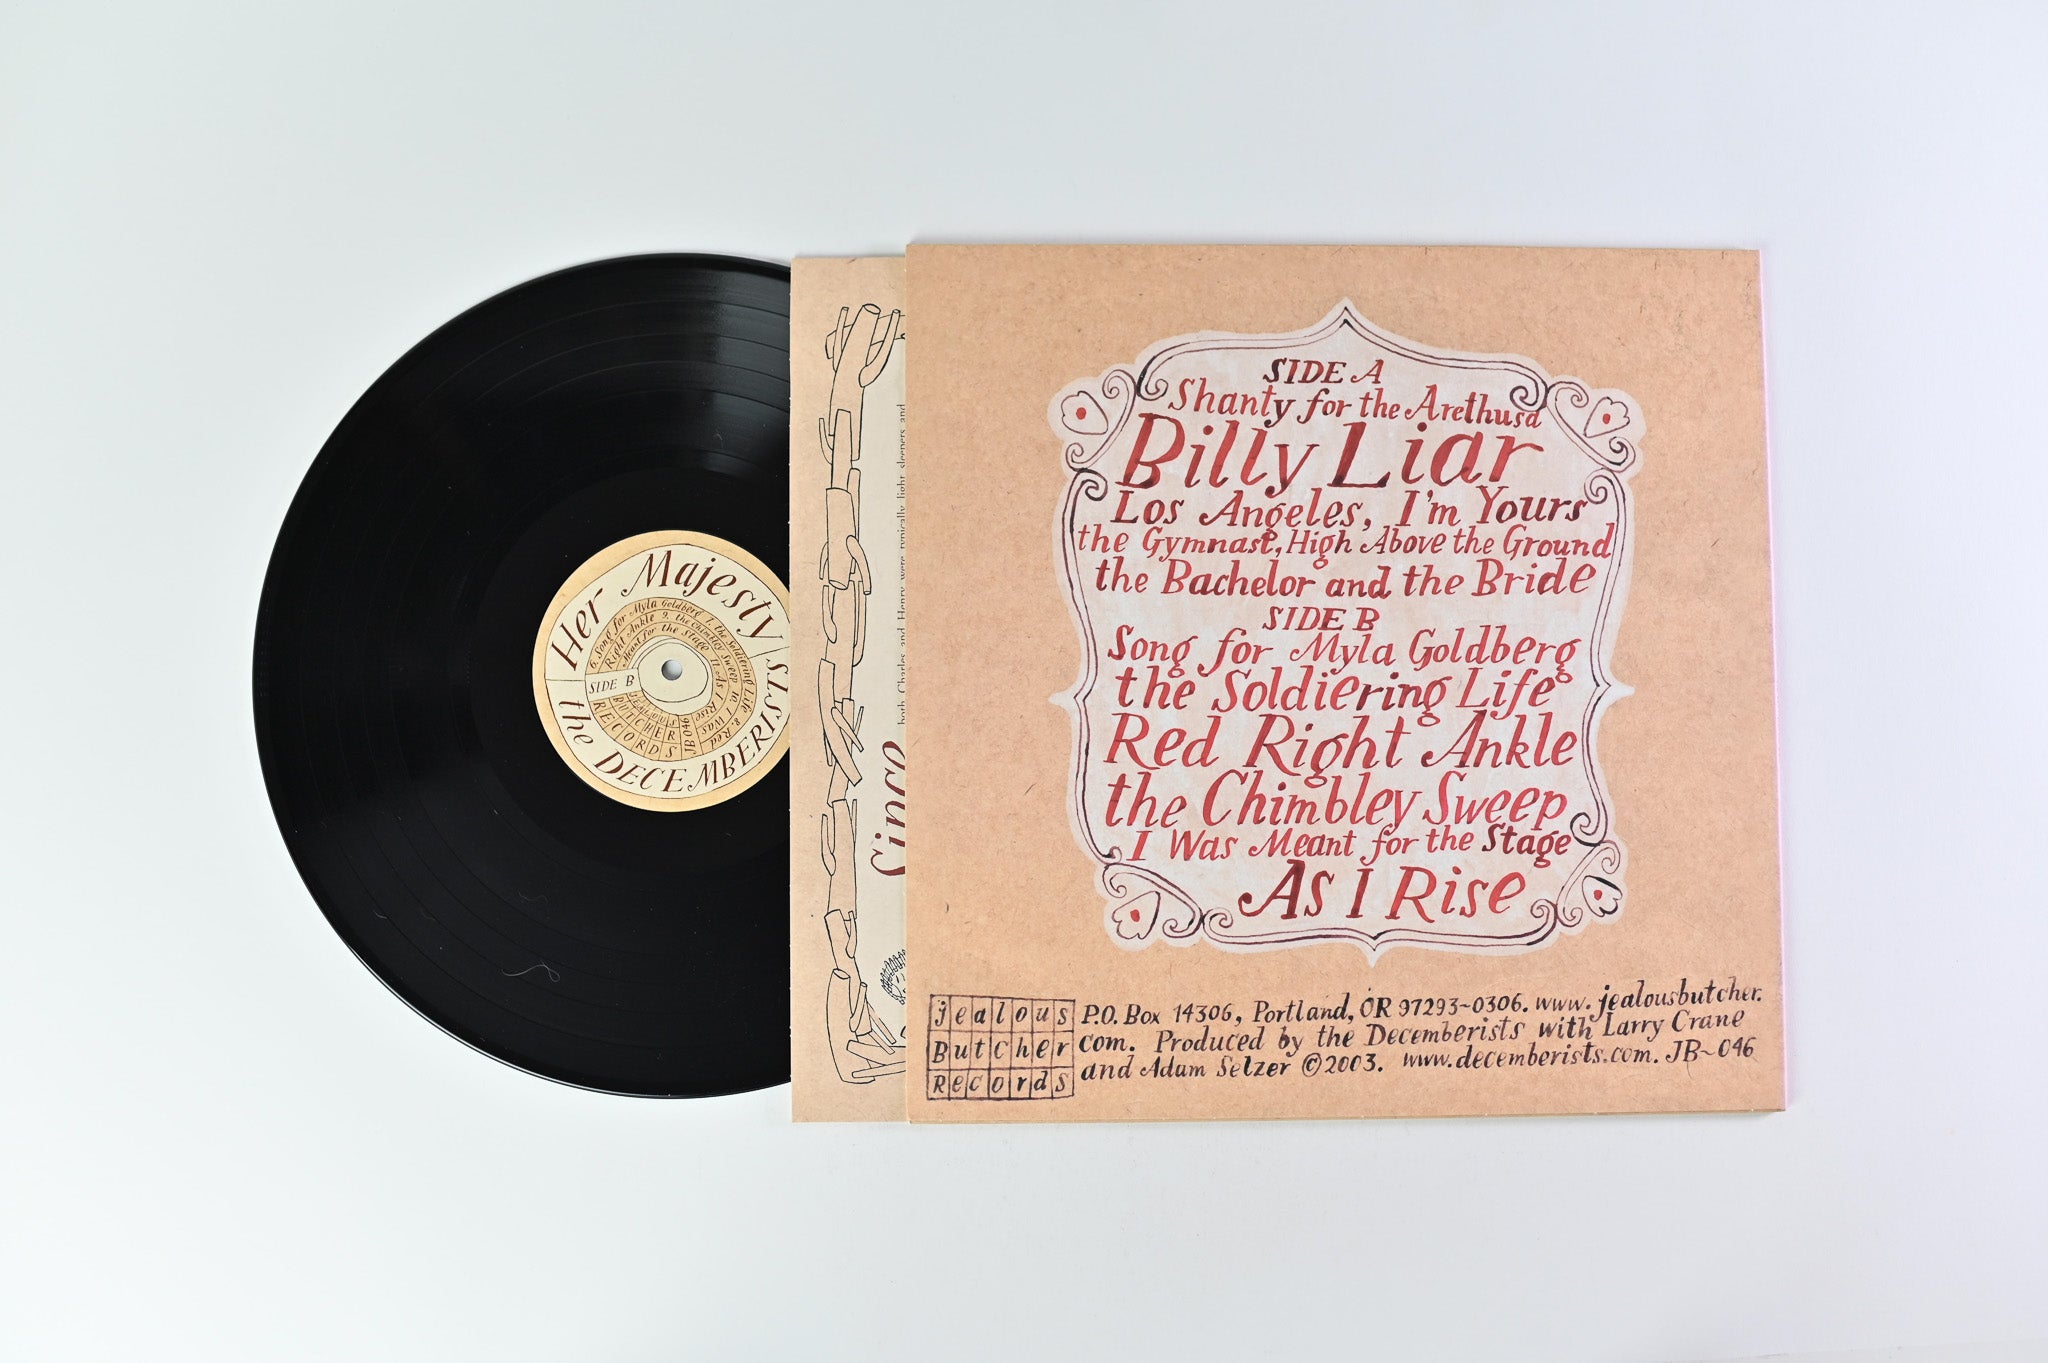 Her Majesty
the DECEMBERISTS
6. Song for Myla Goldberg 7. the Soldiering Life 8. Red
Right Ankle 9. the Chimbley Sweep 10. I Was
Meant for the Stage 11. As I Rise
SIDE B
JEALOUS
BUTCHER
RECORDS
JB046
both Charles and Henry were typically light sleepers and
Since
SIDE A
Shanty for the Arethusa
Billy Liar
Los Angeles, I'm Yours
the Gymnast, High Above the Ground
the Bachelor and the Bride
SIDE B
Song for Myla Goldberg
the Soldiering Life
Red Right Ankle
the Chimbley Sweep
I Was Meant for the Stage
As I Rise
jealous
Butcher
Records
P.O. Box 14306, Portland, OR 97293~0306. www.jealousbutcher.
com. Produced by the Decemberists with Larry Crane
and Adam Selzer ©2003. www.decemberists.com. JB~046